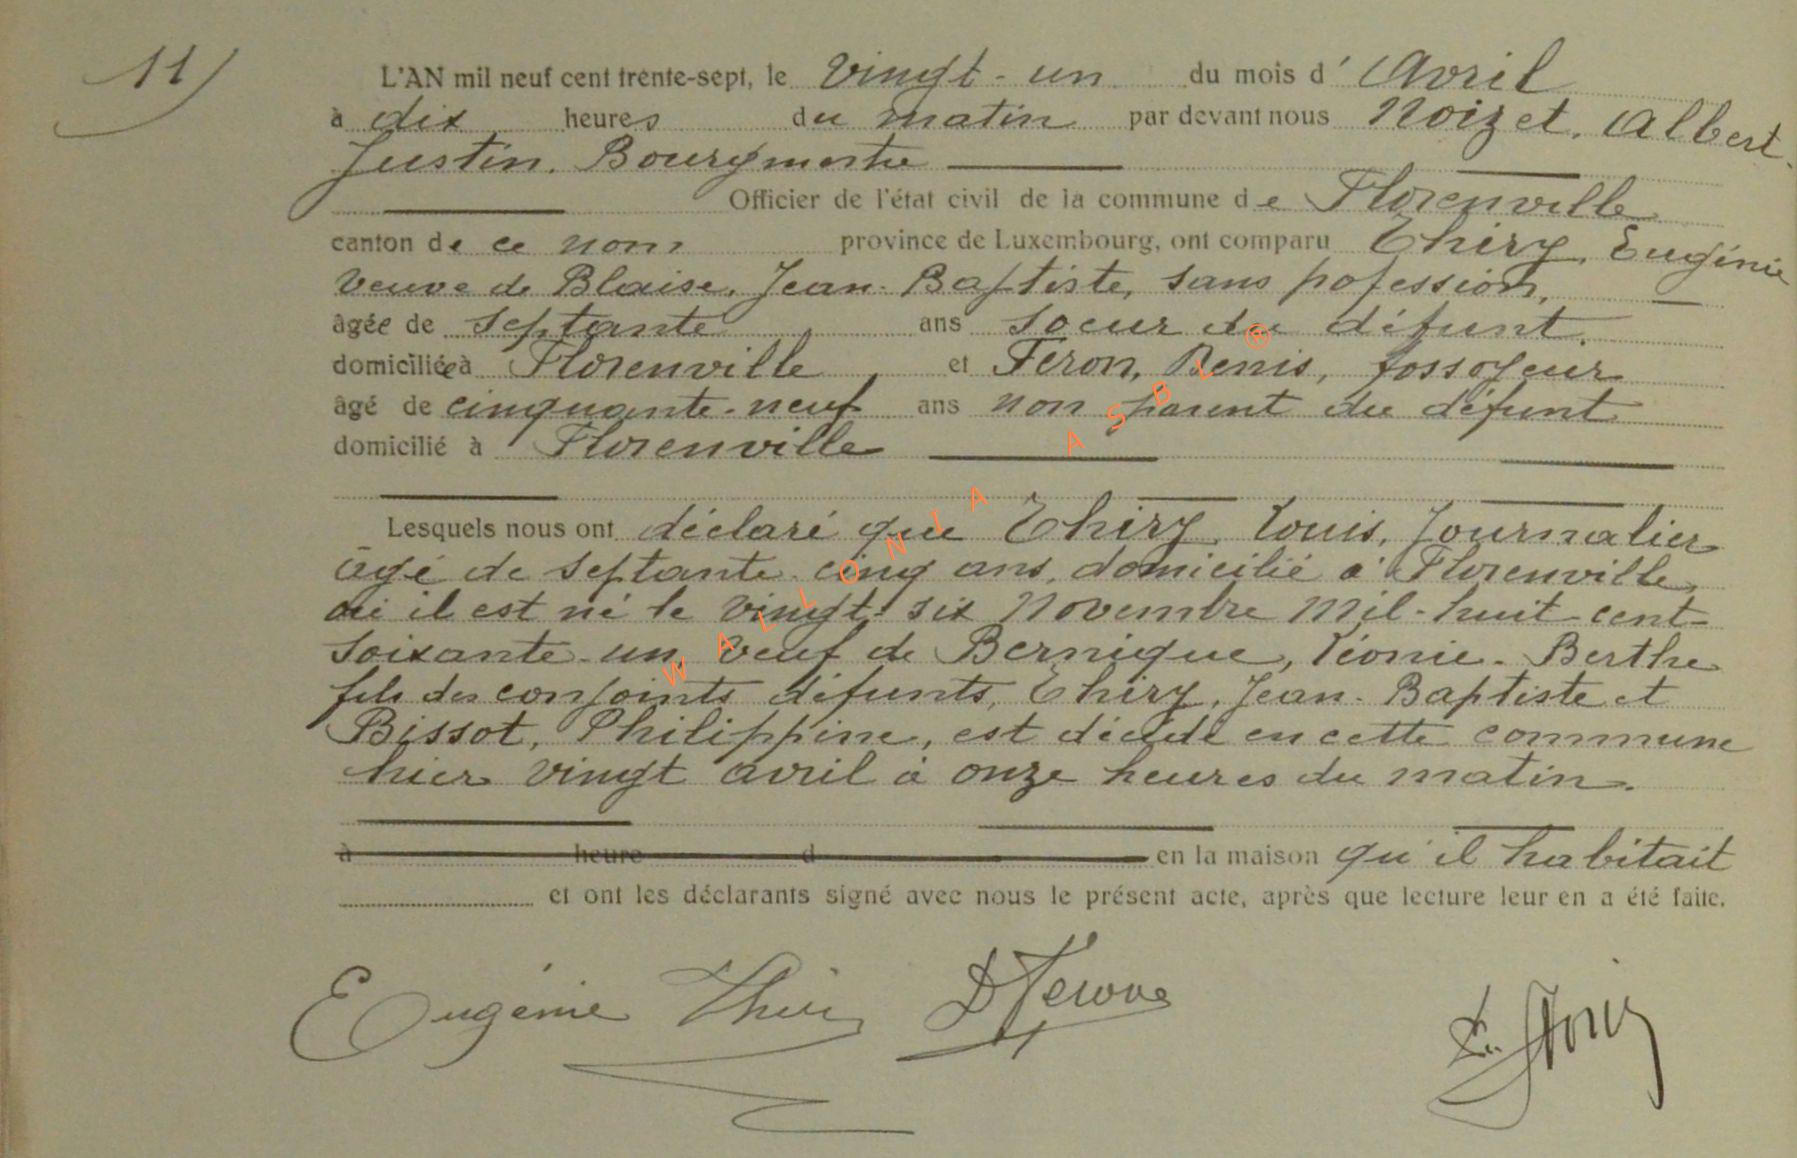 11)
L'AN mil neuf cent trente-sept, le vingt-un du mois d' Avril
à dix heures du matin par devant nous Noizet, Albert-
Justin, Bourgmestre
Officier de l'état civil de la commune de Florenville
canton de ce nom province de Luxembourg, ont comparu Thiry, Eugénie
veuve de Blaise, Jean-Baptiste, sans pofession,
âgée de septante ans soeur du défunt.
domiciliée à Florenville et Feron, Denis, fossoyeur
âgé de cinquante-neuf ans non parent du défunt
domicilié à Florenville
Lesquels nous ont déclaré que Thiry, Louis, Journalier
âgé de septante-cinq ans, domicilié à Florenville,
où il est né le vingt-six Novembre mil-huit-cent-
soixante-un, veuf de Bernique, Léonie-Berthe
fils des conjoints défunts, Thiry, Jean-Baptiste et
Bissot, Philippine, est décédé en cette commune
hier vingt avril à onze heures du matin.
à heure d en la maison qu'il habitait
et ont les déclarants signé avec nous le présent acte, après que lecture leur en a été faite.
Eugénie Thiry D Feron
WALLONIA ASBL ®